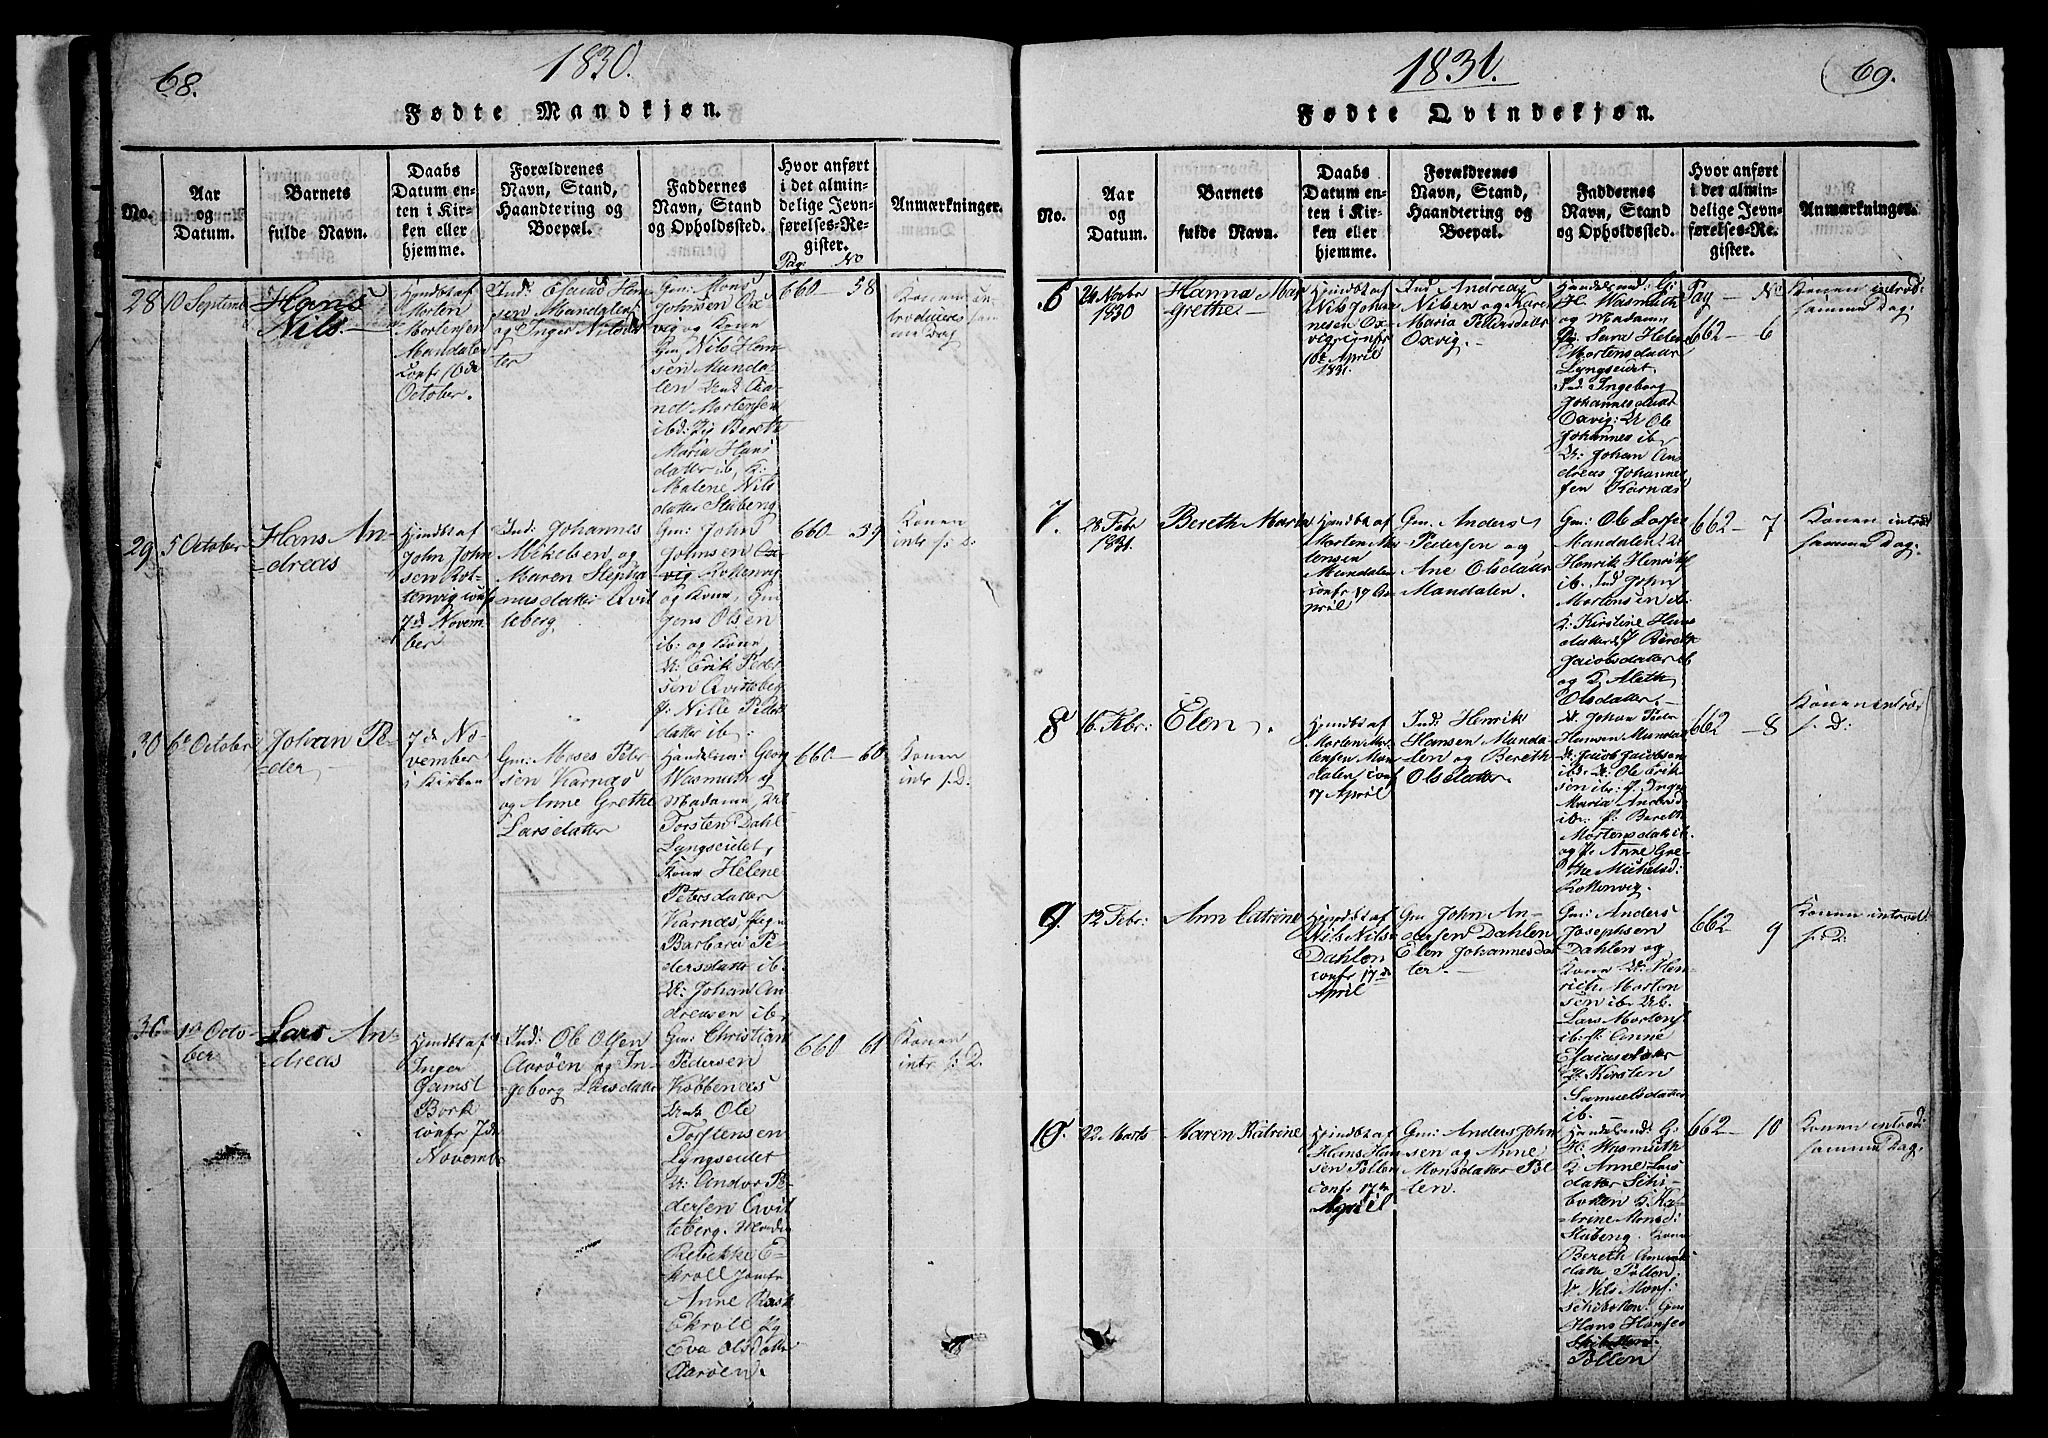 68.
1830.
Fødte Mandkjøn.
No.
Aar
og
Datum.
Barnets
fulde Navn.
Daabs
Datum en-
ten i Kir-
ken eller
hjemme.
Forældrenes
Navn, Stand,
Haandtering og
Boepæl.
Faddernes
Navn, Stand
og Opholdssted.
Hvor anført
i det almin-
delige Jevn-
førelses-Re-
gister.
Pag: No
Anmærkninger.
28
10 Septemb
Hans
Nils
Hjmdbt af
Morten
Mortensen
Mandalen
Confr 10de
October.
Ind: Esaias Han
sen Mandalen
og Inger Nilsdat
ter
Gm: Mons
Johnsen Ox
vig og Kone
Gm: Nils Han
sen Manda
len
Mortensen
ibd: Bereth
Maria Hans
datter ib. K:
Malene Nils
datter Stubeng
660 - 58
Konen in
troduceret sam
me Dag
29
5 October
Hans An
dreas
Hjmdbt af
John John
sen Rot
tenvig confr
7de Novem
ber
Ind: Johannes
Mikelsen og
Maren Stepha
nusdatter Qvit
teberg
Gm: John
Johnsen
Rottenvig
og Kone, Gm
Jens Olsen
ib: og Kone
U: Erik Peder
sen Qvitteberg
p: Nille Peders
datter ib:
660 - 59
Konen
intr s: D:
30
6te October
Johan Pe-
der
7de No-
vember
i Kirken
Gm: Moses Peter
sen Karnæs
og Anne Grethe
Larsdatter
Handelsm: Georg
Wasmuth og
Madame,
Torsten Dahl
Lyngseidet,
Kone Helene
Petersdatter
Karnæs, Pige
Barbara Pe
dersdatter ib.
U: Johan An
dreasen ib:
660 - 60
Konen
intr s: D:
Octo-
ber
Lars An-
dreas
Hjmdbt af
Inger
Gamst
Bork
confr 7de
Novemb
Ind: Ole Olsen
Aarøen og In-
geborg Larsdatter
Gm: Christian
Pedersen
Kobbenæs
Ole
Torstensen
Lyngseidet
U: Andor Pe
dersen Qvit
teberg. Madm
Rebekke E-
kroll Jomfr
Anne Rask
Ekroll Pg
Eva Olsdatter
Aarøen.
660 61
Konen
intr s: D.
69.
1831.
Fødte Qvindekjøn.
No.
Aar
og
Datum.
Barnets
fulde Navn.
Daabs
Datum en-
ten i Kir-
ken eller
hjemme.
Forældrenes
Navn, Stand,
Haandtering og
Boepæl.
Faddernes
Navn, Stand
og Opholdssted.
Hvor anført
i det almin-
delige Jevn-
førelses-Re-
gister.
Anmærkninger.
6
24 Novbr
1830
Hanna Mar
grethe
Hjmdbt af
Nils Johan
nesen Ox
vig confr
April
1831.
Ind Andreas
Nilsen og Karen
Maria Pedersdatter
Oxvig.
Handelsmd: G:
H. Wasmuth
og Madame
Sara Helene
Mortensdatter
Lyngseidet
Ind: Ingeborg
Johannesdatter
Oxvig: U Ole
Johannes ib
U: Johan An
dreas Johannes
sen Karnæs
Pag - No
662 - 6
Konen introd
samme Dag:
7.
28 Febr
1831.
Bereth Maria
Hjmdbt af
Morten Mor
tensen
Mandalen
confr 17 A
pril
Gm: Anders
Pedersen og
Ane Olsdatter
Mandalen.
Gm: Ole Larsen
Mandalen U:
Henrik Henriks
ib. Ind John
Mortensen ib.
K: Kirstine Hans
datter Bereth
Jacobsdatter ib
og K Aleth
Olsdatter.
662 - 7
Konen introd
samme Dag:
8
16 Febr:
Elen.
Hjmdbt af
Morten Mor
tensen Man
dalen, conf
17 April
Ind: Henrik
Hansen Manda
len og Bereth
Olsdatter.
U. Johan Peder
Hansen Mandal
U: Jacob Jacobsen
ibd: U: Ole Erik
sen ib: p. Inger
Maria Andersd
ib: p: Bereth
Mortensdatt ib.
og p. Anne Gre
the Mickelsd:
Rottenvig.
662 - 8
Konen introd
s: D:
9.
12 Febr:
Ann Catrine
Hjmdbt af
Nils Nils
Dahlen
confr 17de
April
Gm John An-
dersen Dahlen
Elen Johannesdat
ter.
Gm: Anders
Josephsen
Dahlen og
Kone U: Hen
rich Morten
sen ib: U:
Lars Mortens
ib: p: Anne
Esaiasdatter
P. Kirsten
Samuelsdatter
ib.
662 9
Konen introd
s: D:
10.
22 Marts
Maren Katrine
Hjmdbt af
Hans Han
sen Pollen
confr 17de
April
Gm: Anders John
sen og Anne
Monsdatter Pol
len.
Handelsmd: G:
H. Wasmuth
K Anne Lars
datter Schi
botten K: Ka
trine Monsd:
Stubeng. Kone
Bereth Amunds
datter Pollen:
U Nils Mons:
Schibotten: Gm:
Hans Hansen
Pollen
662 - 10
Konen introd:
samme Dag: